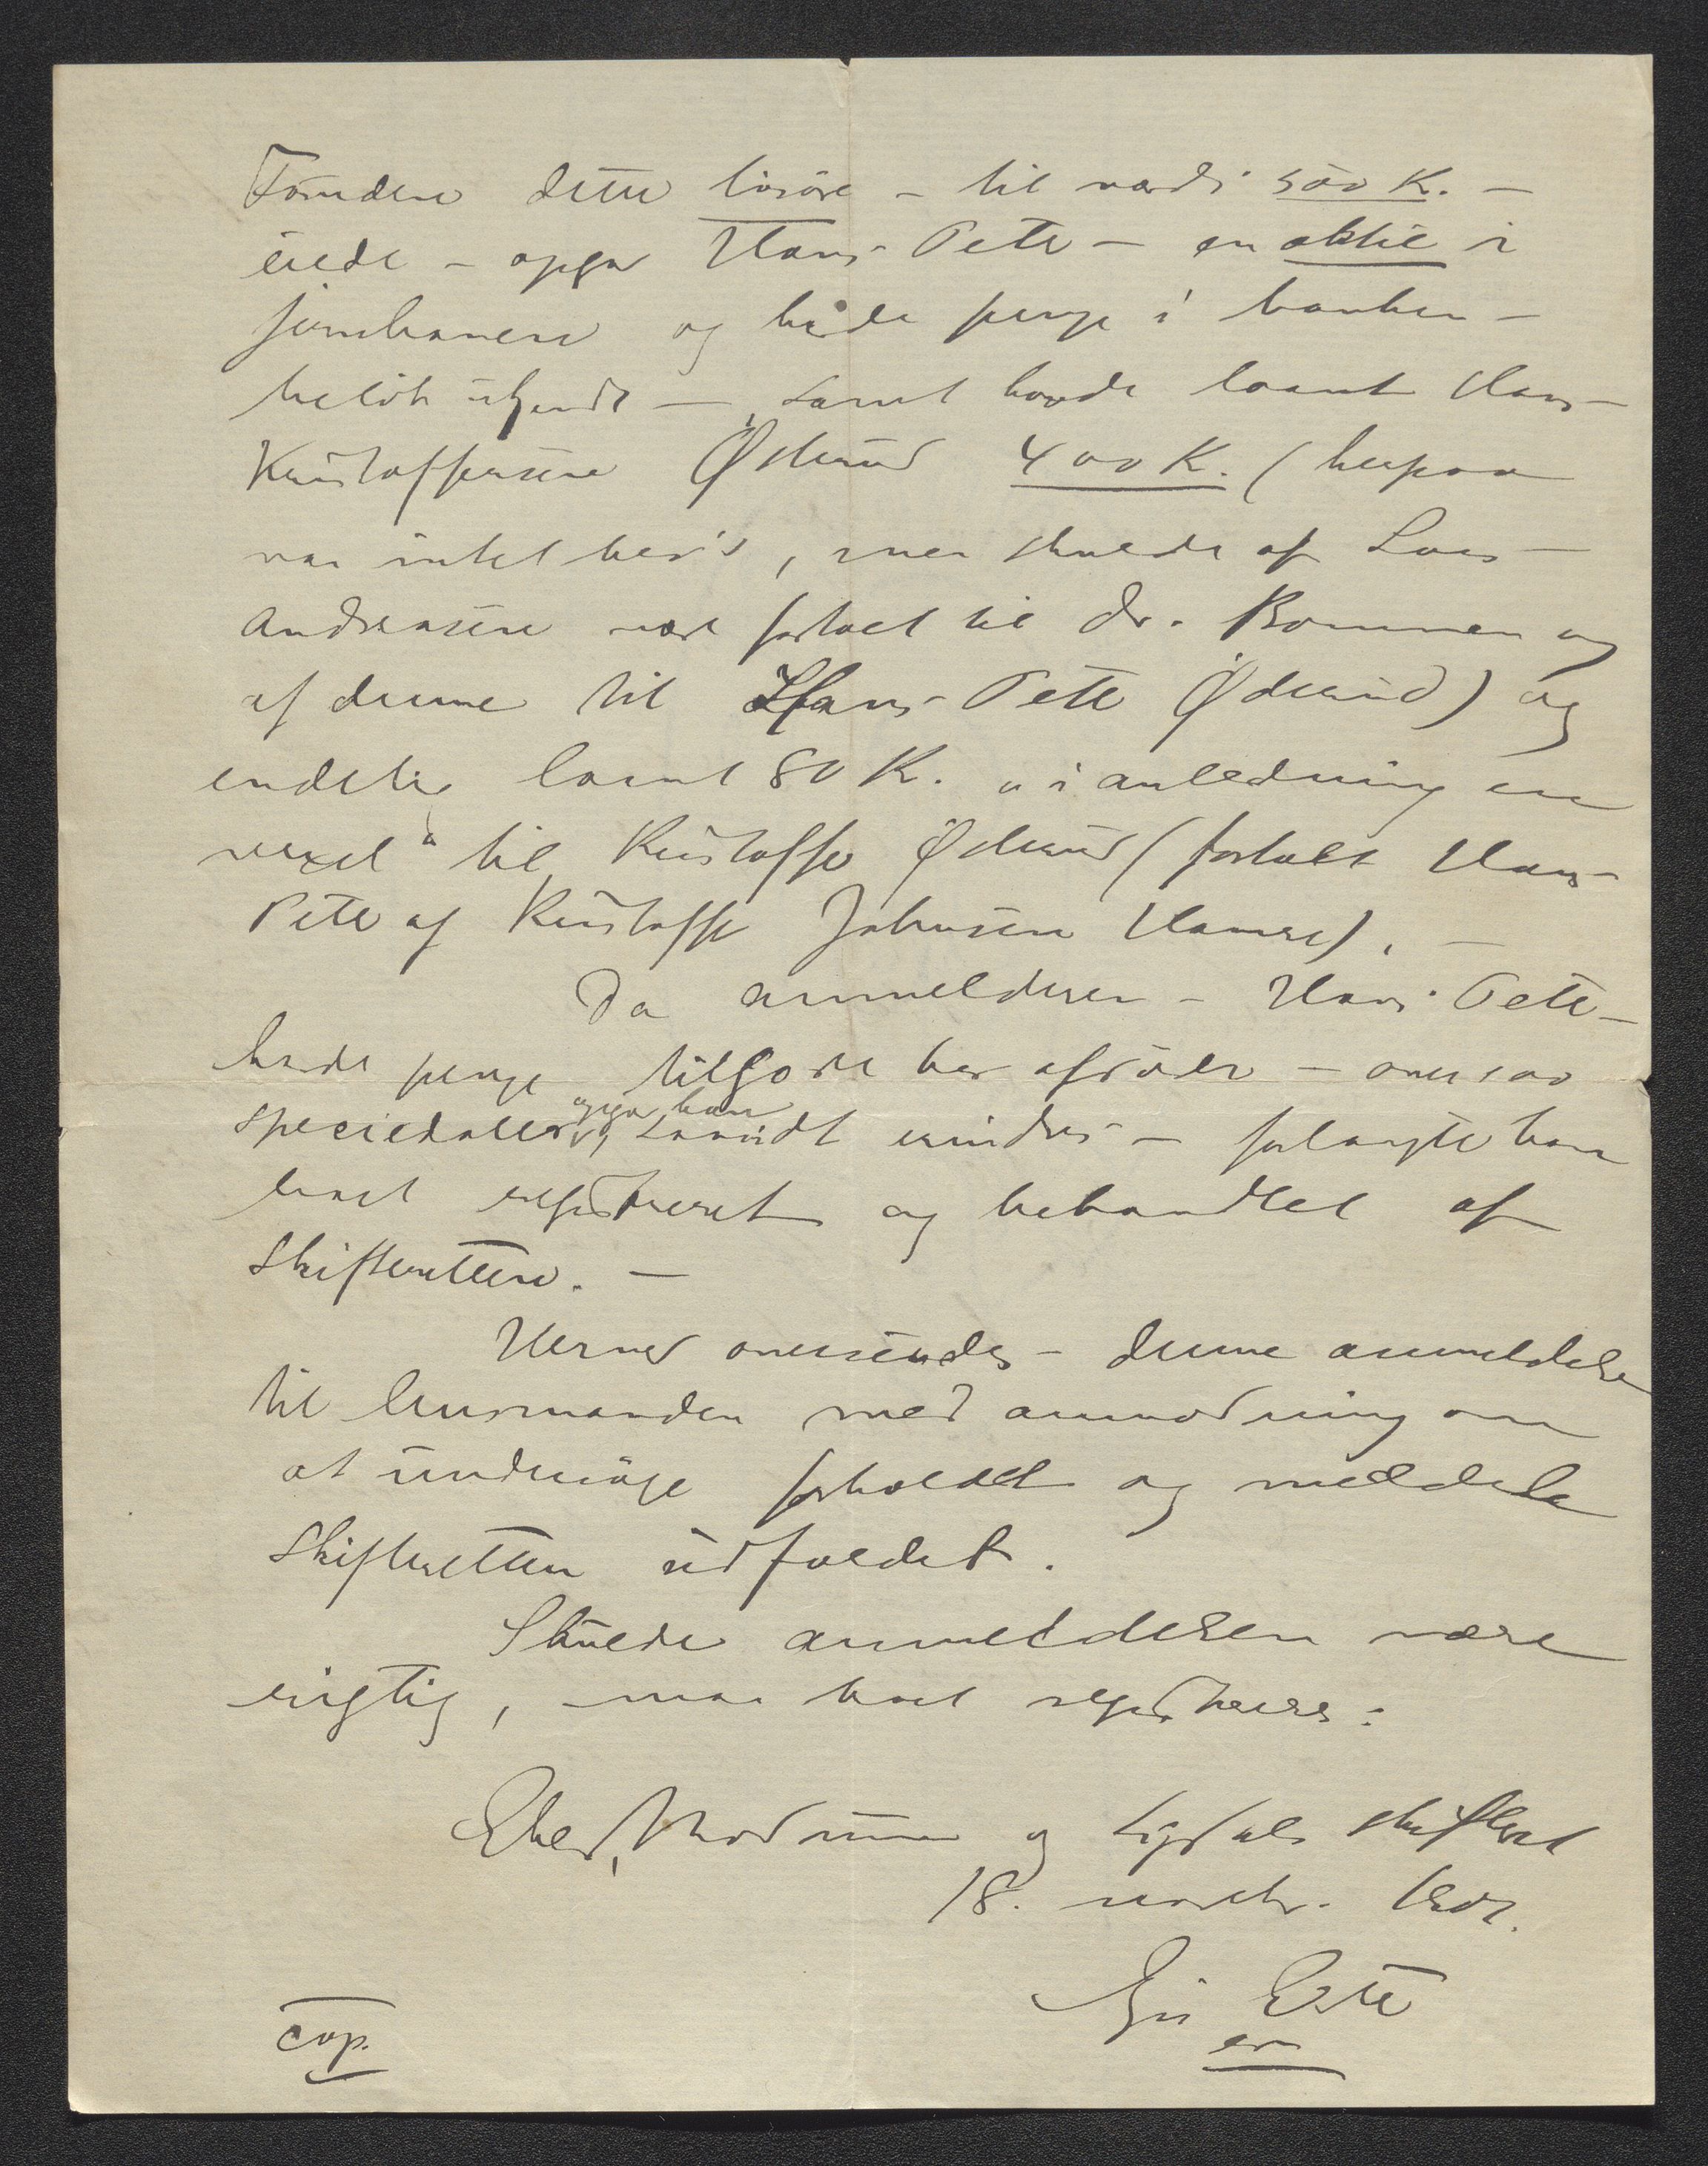 Foruden dette lösöre – til værdi 500 K. –
eiede – opga Hans Peter – en aktie i
jernbanen og havde penge i banken –
belöb ukjendt –, samt havde laant Hans
Kristoffersen Øderud 400 K. (herpaa
var intet bevis, men skulde af Lars
Andreassen være fortalt til dr. Bommen og
af denne til Hans Peter Øderud) og
endelig laant 80 K. "i anledning en
vexel" til Kristoffer Øderud (fortalt Hans
Peter af Kristoffer Johnsen Hamre). –
Da anmelderen – Hans Peter –
havde penge tilgode hos afdöde – over 100
speciedaler, opga han, saavidt erindres – forlangte han
boet registreret og behandlet af
skifteretten. –
Herved oversendes – denne anmeldelse
til lensmanden med anmodning om
at undersöge forholdet og meddele
skifteretten udfaldet.
Skulde anmeldelsen være
rigtig, maa boet registreres.
Eker, Modum og Sigdals skifteret
18. novbr. 190
cop.